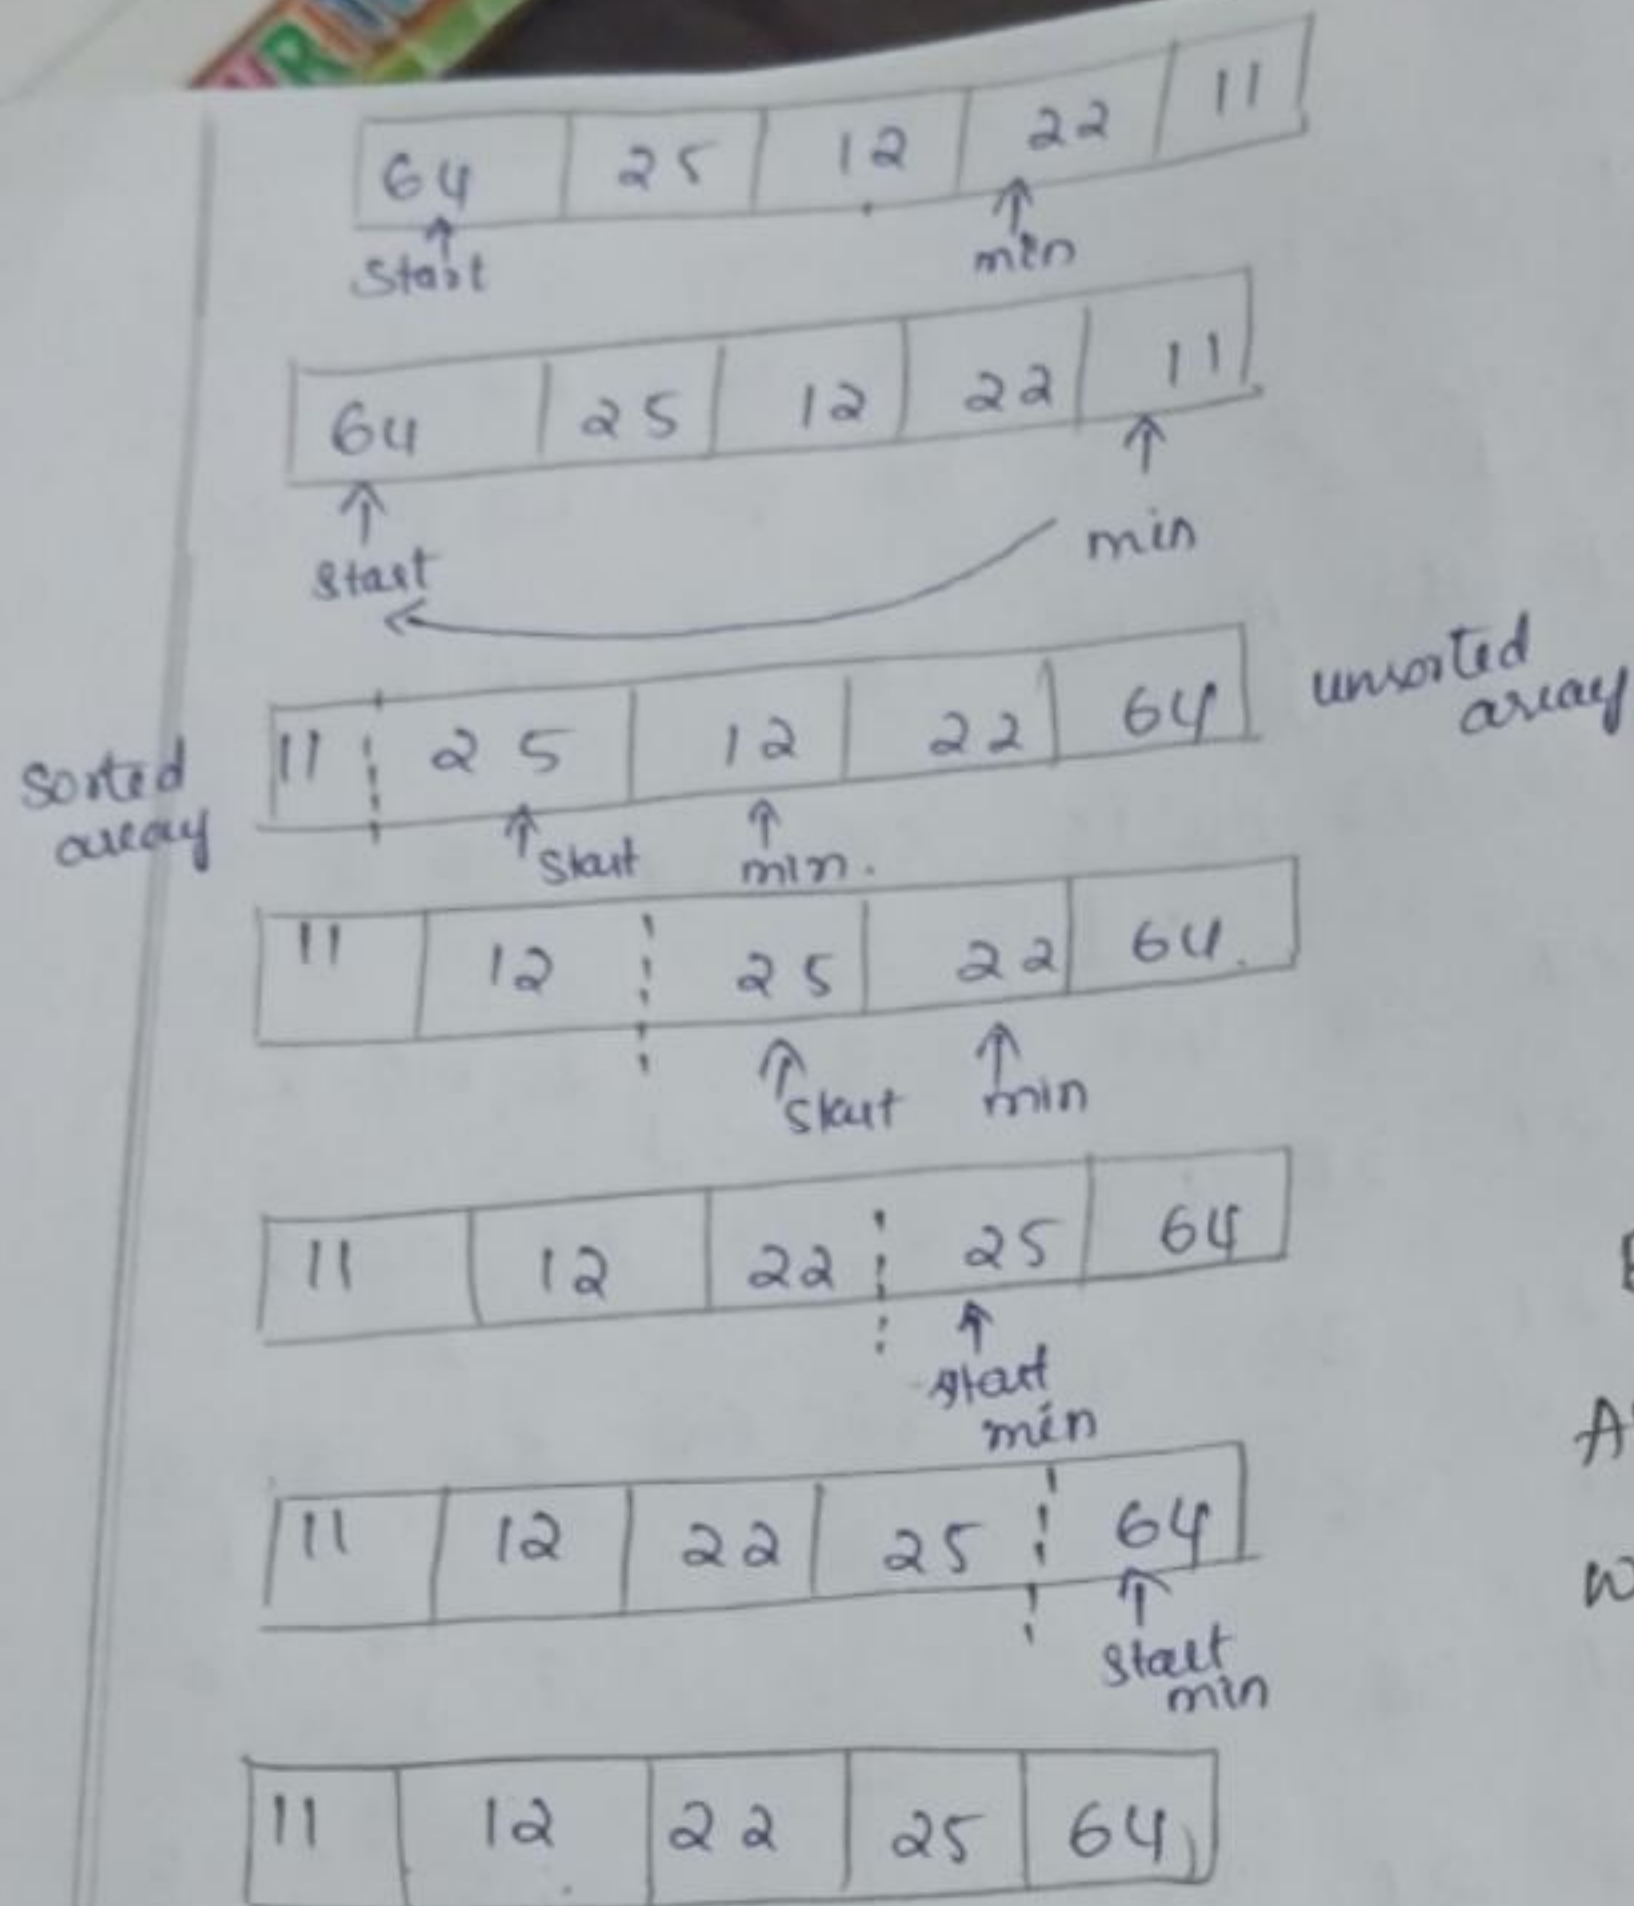 64 25 12 22 11
Start min
64 25 12 22 11
Start min
Sorted array 11 25 12 22 64 unsorted array
Start min.
11 12 25 22 64.
Start min
11 12 22 25 64
Start
min
11 12 22 25 64
Start
min
11 12 22 25 64